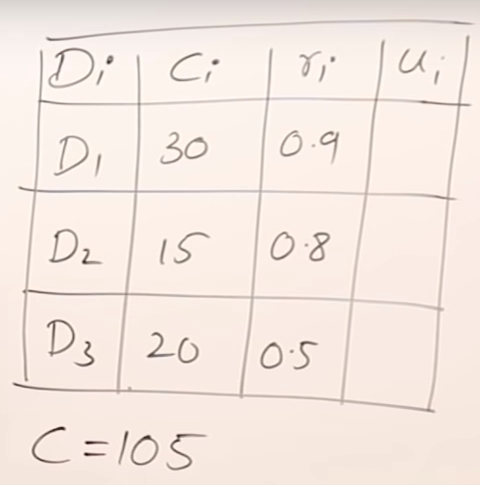 Di Ci ri ui
D1 30 0.9
D2 15 0.8
D3 20 0.5
C=105